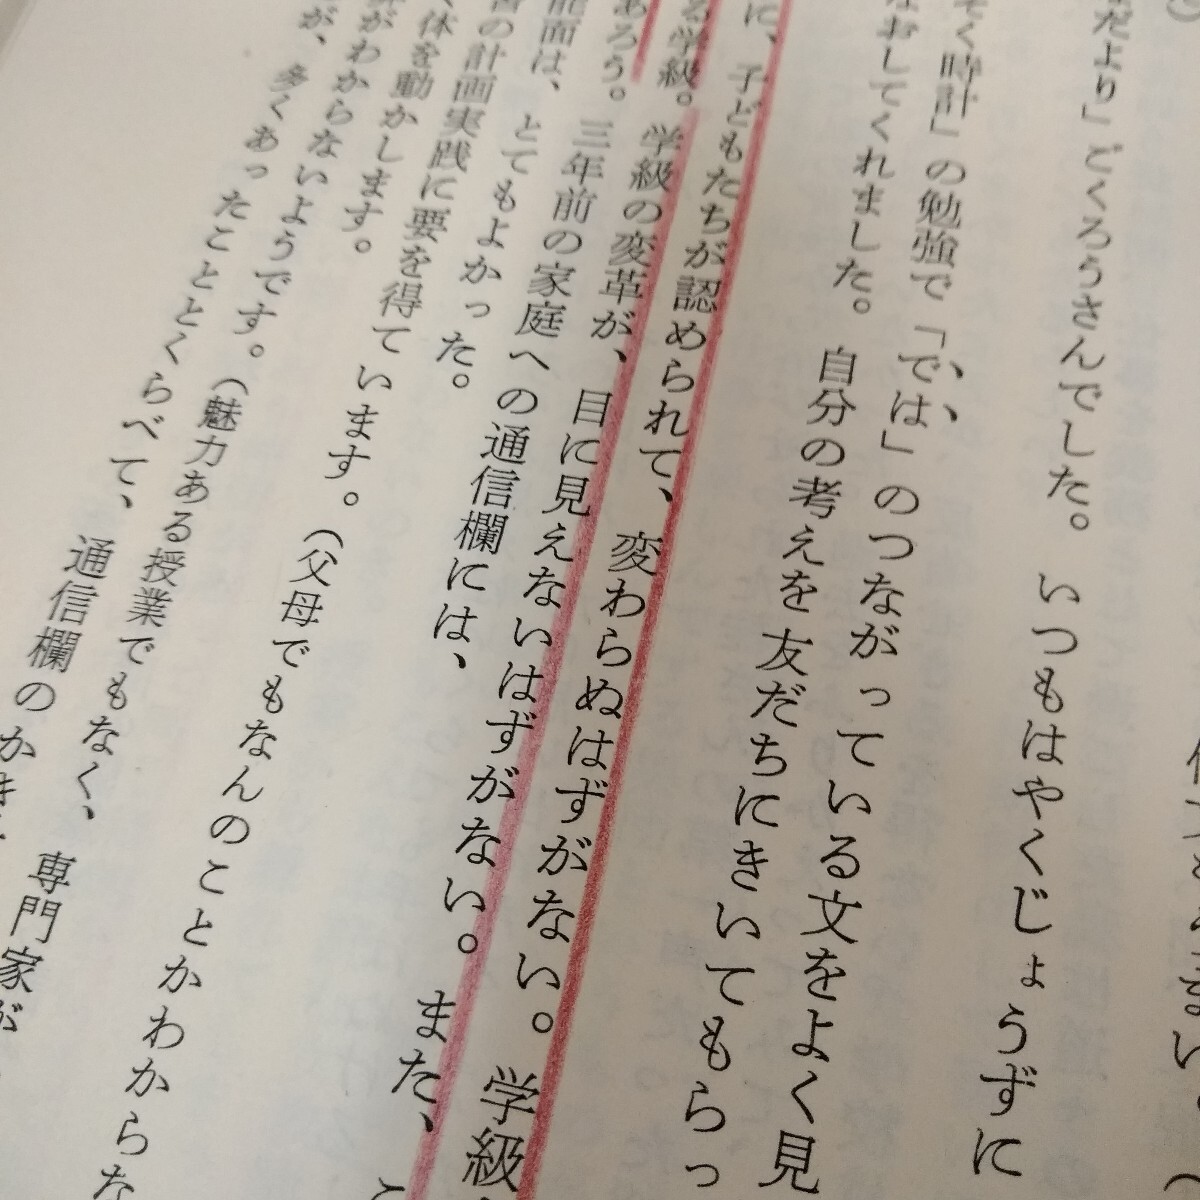 だより」ごくろうさんでした。 いつもはやくじょうずに
そく時計」の勉強で「では」のつながっている文をよく見
なおしてくれました。 自分の考えを友だちにきいてもらっ
に、子どもたちが認められて、変わらぬはずがない。学級
る学級。学級の変革が、目に見えないはずがない。また、こ
あろう。三年前の家庭への通信欄には、
能面は、とてもよかった。
の計画実践に要を得ています。(父母でもなんのことかわからな
体を動かします。
がわからないようです。(魅力ある授業でもなく、専門家が
が、多くあったこととくらべて、通信欄のかき